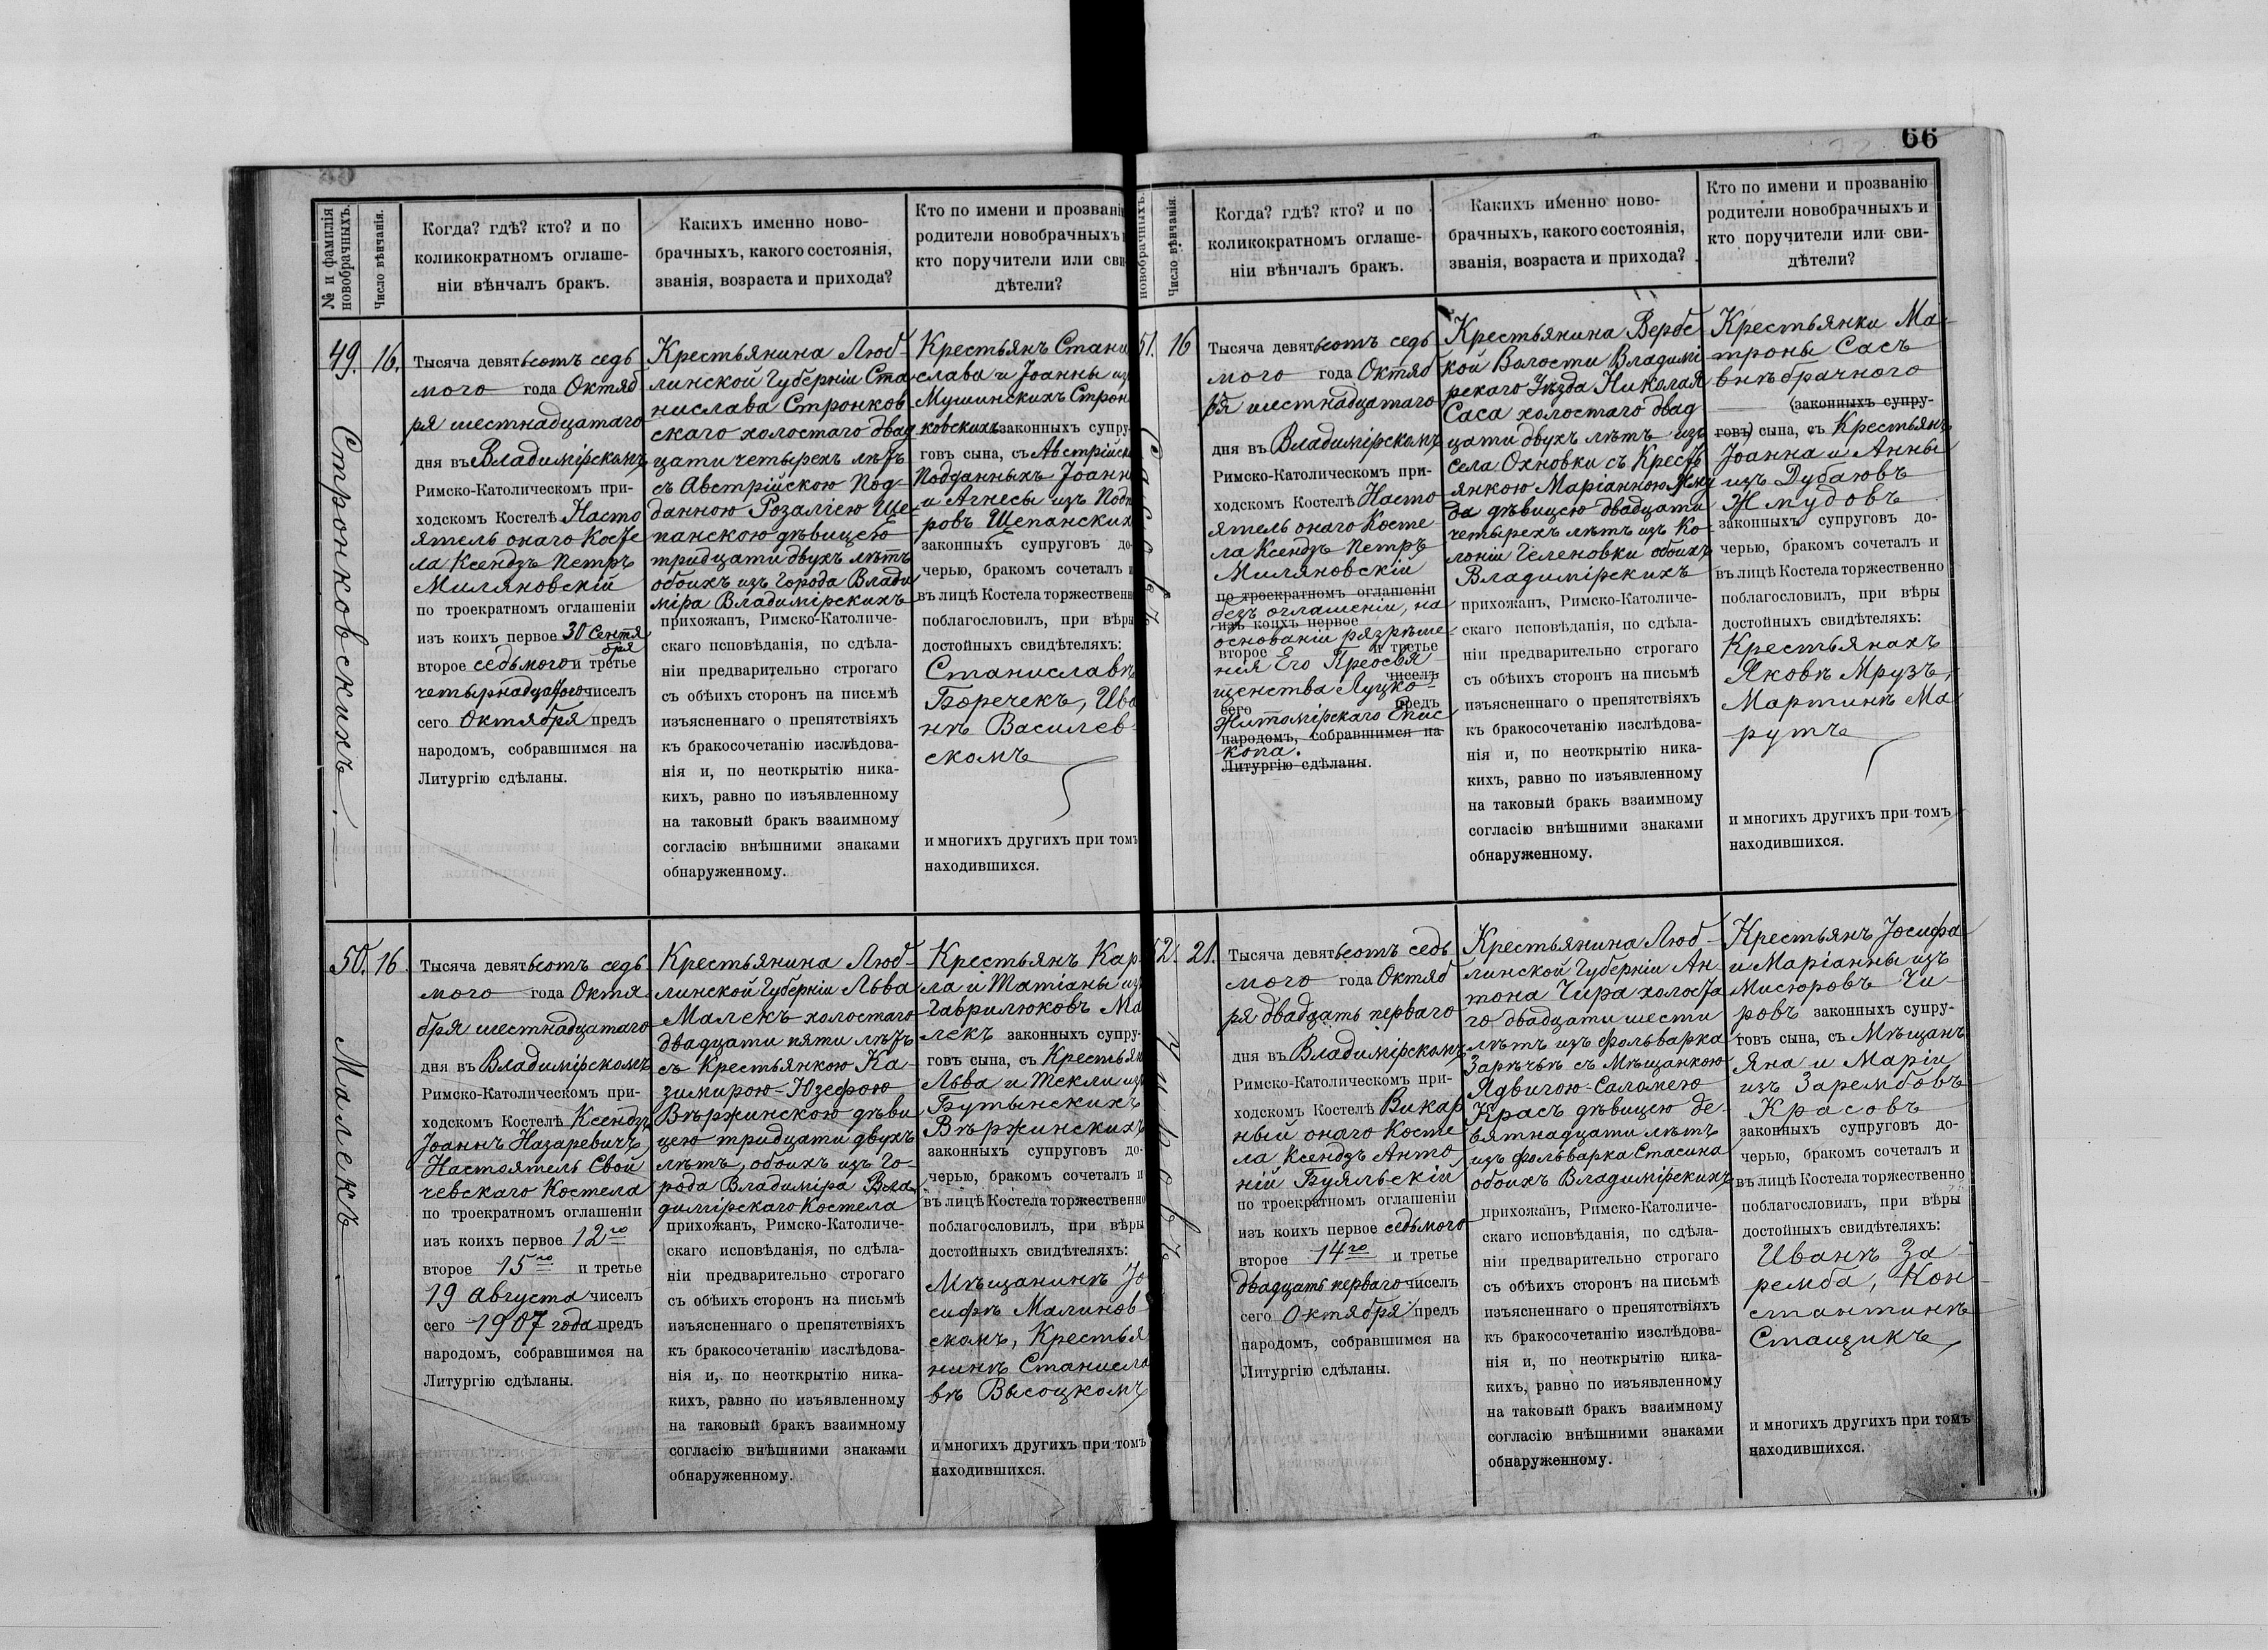 66
№ и фамилія
новобрачныхъ.
Число вѣнчанія.
Когда? гдѣ? кто? и по
коликократномъ оглаше-
ніи вѣнчалъ бракъ.
Какихъ именно ново-
брачныхъ, какого состоянія,
званія, возраста и прихода?
Кто по имени и прозванію
родители новобрачныхъ
кто поручители или сви
дѣтели?
49.
Стронковскихъ.
16.
Тысяча девятьсотъ седь
мого года Октяб
ря шестнадцатаго
дня въ Владимірскомъ
Римско-Католическом при-
ходском Костелѣ Насто
ятель онаго Косте
ла Ксендзъ Петръ
Миляновскій
по троекратном оглашеніи
изъ коихъ первое 30 Сентя
бря
второе седьмого и третье
четырнадцатого чиселъ
сего Октября предъ
народомъ, собравшимся на
Литургію сдѣланы.
Крестьянина Люб-
линской Губерніи Ста
нислава Стронков
скаго холостаго двад
цати четырехъ лѣтъ
съ Австрійскою Под-
данною Розаліею Ще-
панскою дѣвицею
тридцати двухъ лѣтъ
обоихъ изъ города Влади
міра Владимірскихъ
прихожанъ, Римско-Католиче-
скаго исповѣданія, по сдѣла-
ніи предварительно строгаго
съ обѣихъ сторонъ на письмѣ
изъясненнаго о препятствіяхъ
къ бракосочетанію изслѣдова-
нія и, по неоткрытію ника-
кихъ, равно по изъявленному
на таковый бракъ взаимному
согласію внѣшними знаками
обнаруженному.
Крестьянъ Стани
слава и Іоанны из
Мушинскихъ Строн
ковскихъ законныхъ супру
говъ сына, съ Австрійск
Подданныхъ Іоанн
и Агнесы изъ Подн
ровъ Щепанских
законныхъ супруговъ до
черью, бракомъ сочеталъ и
въ лицѣ Костела торжественн
поблагословилъ, при вѣры
достойныхъ свидѣтеляхъ:
Станиславѣ
Боречекъ, Ива
нѣ Василев
скомъ
и многихъ другихъ при томъ
находившихся.
50.
Малекъ.
16.
Тысяча девятьсотъ седь
мого года Октя
бря шестнадцатаго
дня въ Владимірскомъ
Римско-Католическом при-
ходскомъ Костелѣ Ксендзъ
Іоаннъ Назаревичъ,
Настоятель Свой
чевскаго Костела
по троекратном оглашеніи
изъ коихъ первое 12го
второе 15го и третье
19 августа чиселъ
сего 1907 года предъ
народомъ, собравшимся на
Литургію сдѣланы.
Крестьянина Люб-
линской Губерніи Льва
Малекъ холостаго
двадцати пяти лѣтъ
съ Крестьянкою Ка-
зимирою-Юзефою
Вѣржинскою дѣви
цею тридцати двухъ
лѣтъ, обоихъ изъ го-
рода Владиміра Вла
димірскаго Костела
прихожанъ, Римско-Католиче-
скаго исповѣданія, по сдѣла-
ніи предварительно строгаго
съ обѣихъ сторонъ на письмѣ
изъясненнаго о препятствіяхъ
къ бракосочетанію изслѣдова-
нія и, по неоткрытію ника-
кихъ, равно по изъявленному
на таковый бракъ взаимному
согласію внѣшними знаками
обнаруженному.
Крестьянъ Кар
ла и Татіаны из
Гаврилюковъ Ма
лекъ законныхъ супру-
говъ сына, съ Крестьян
Льва и Теклы из
Бутынскихъ
Вѣржинскихъ
законныхъ супруговъ до-
черью, бракомъ сочеталъ и
въ лицѣ Костела торжественно
поблагословилъ, при вѣры
достойныхъ свидѣтеляхъ:
Мѣщанинѣ Іо
сифѣ Малинов
скомъ, Крестья
нинѣ Станисла
вѣ Высоцкомъ
и многихъ другихъ при томъ
находившихся.
новобрачныхъ.
Число вѣнчанія.
Когда? гдѣ? кто? и по
коликократномъ оглаше-
ніи вѣнчалъ бракъ.
Какихъ именно ново-
брачныхъ, какого состоянія,
званія, возраста и прихода?
Кто по имени и прозванію
родители новобрачныхъ и
кто поручители или сви-
дѣтели?
51.
16
Тысяча девятьсотъ седь
мого года Октяб
ря шестнадцатаго
дня въ Владимірскомъ
Римско-Католическом при-
ходскомъ Костелѣ Насто
ятель онаго Косте
ла Ксендзъ Петръ
Миляновскій
по троекратном оглашеніи
безъ оглашеніи, на
изъ коихъ первое
основаніи разрѣше-
второе и третье
нія Его Преосвя
чиселъ
щенства Луцко-
сего предъ
Житомірскаго Епис
народомъ, собравшимся на
копа.
Литургію сдѣланы.
Крестьянина Вербс
кой Волости Владимі
рскаго Уѣзда Николая
Саса холостаго двад
цати двухъ лѣтъ изъ
села Охновки съ Кресть
янкою Маріанною Жму
да дѣвицею двадцати
четырехъ лѣтъ изъ Ко-
лоніи Геленовки обоихъ
Владимірскихъ
прихожанъ, Римско-Католиче-
скаго исповѣданія, по сдѣла-
ніи предварительно строгаго
съ обѣихъ сторонъ на письмѣ
изъясненнаго о препятствіяхъ
къ бракосочетанію изслѣдова-
нія и, по неоткрытію ника-
кихъ, равно по изъявленному
на таковый бракъ взаимному
согласію внѣшними знаками
обнаруженному.
Крестьянки Ма-
троны Сасъ
внѣбрачного
(законныхъ супру-
говъ) сына, съ Крестьянъ
Іоанна и Анны
изъ Дубаювъ
Жмудовъ
законныхъ супруговъ до-
черью, бракомъ сочеталъ и
въ лицѣ Костела торжественно
поблагословилъ, при вѣры
достойныхъ свидѣтеляхъ:
Крестьянахъ
Яковѣ Мрузъ,
Мартинѣ Ма
рутъ
и многихъ другихъ при томъ
находившихся.
52.
21.
Тысяча девятьсотъ седь
мого года Октяб
ря двадцать перваго
дня въ Владимірскомъ
Римско-Католическом при-
ходскомъ Костелѣ Викар
ный онаго Косте
ла Ксендзъ Анто
ній Буяльскій
по троекратном оглашеніи
изъ коихъ первое седьмого
второе 14го и третье
двадцать перваго чиселъ
сего Октября предъ
народомъ, собравшимся на
Литургію сдѣланы.
Крестьянина Люб-
линской Губерніи Ан-
тона Чира холоста
го двадцати шести
лѣтъ изъ фольварка
Зарѣчье съ Мѣщанкою
Ядвигою-Саломею
Красъ дѣвицею де-
вятнадцати лѣтъ
изъ фольварка Стасина
обоихъ Владимірскихъ
прихожанъ, Римско-Католиче-
скаго исповѣданія, по сдѣла-
ніи предварительно строгаго
съ обѣихъ сторонъ на письмѣ
изъясненнаго о препятствіяхъ
къ бракосочетанію изслѣдова-
нія и, по неоткрытію ника-
кихъ, равно по изъявленному
на таковый бракъ взаимному
согласію внѣшними знаками
обнаруженному.
Крестьянъ Іосифа
и Маріанны изъ
Мисюровъ Чи-
ровъ законныхъ супру-
говъ сына, съ Мѣщанъ
Яна и Маріи
изъ Зарембовъ
Красовъ
законныхъ супруговъ до-
черью, бракомъ сочеталъ и
въ лицѣ Костела торжественно
поблагословилъ, при вѣры
достойныхъ свидѣтеляхъ:
Иванѣ За
ремба, Кон-
стантинѣ
Стащикъ,
и многихъ другихъ при томъ
находившихся.